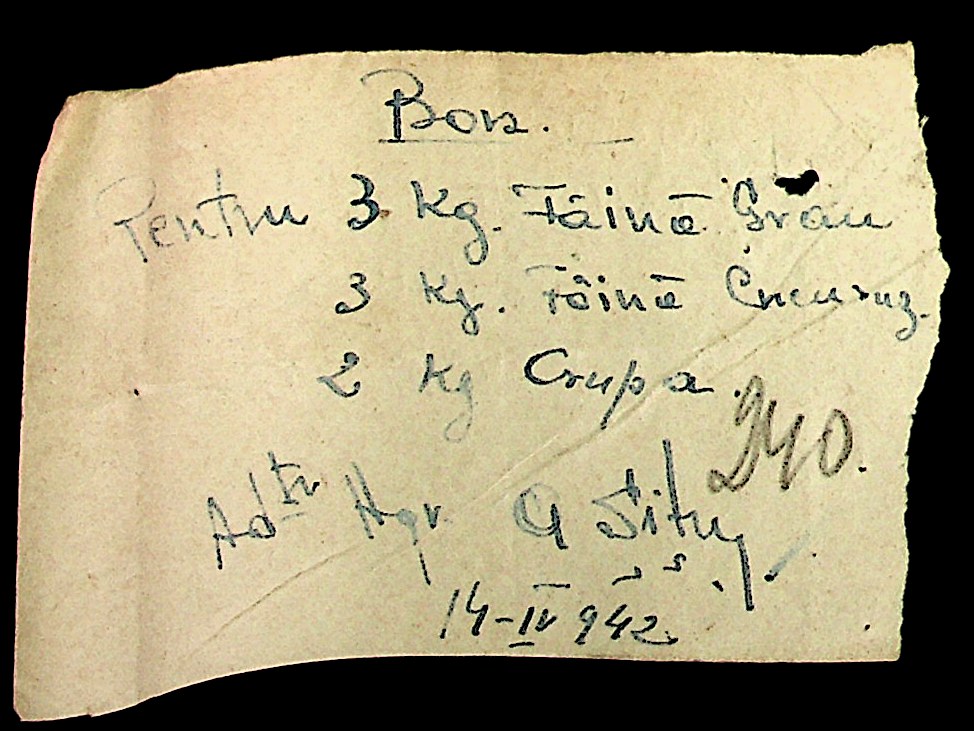 Bon.
Pentru 3 Kg. Făină Grâu
3 Kg. Făină Cucuruz.
2 Kg Crupa.
240.
Adtr Agr. G
14-IV 942